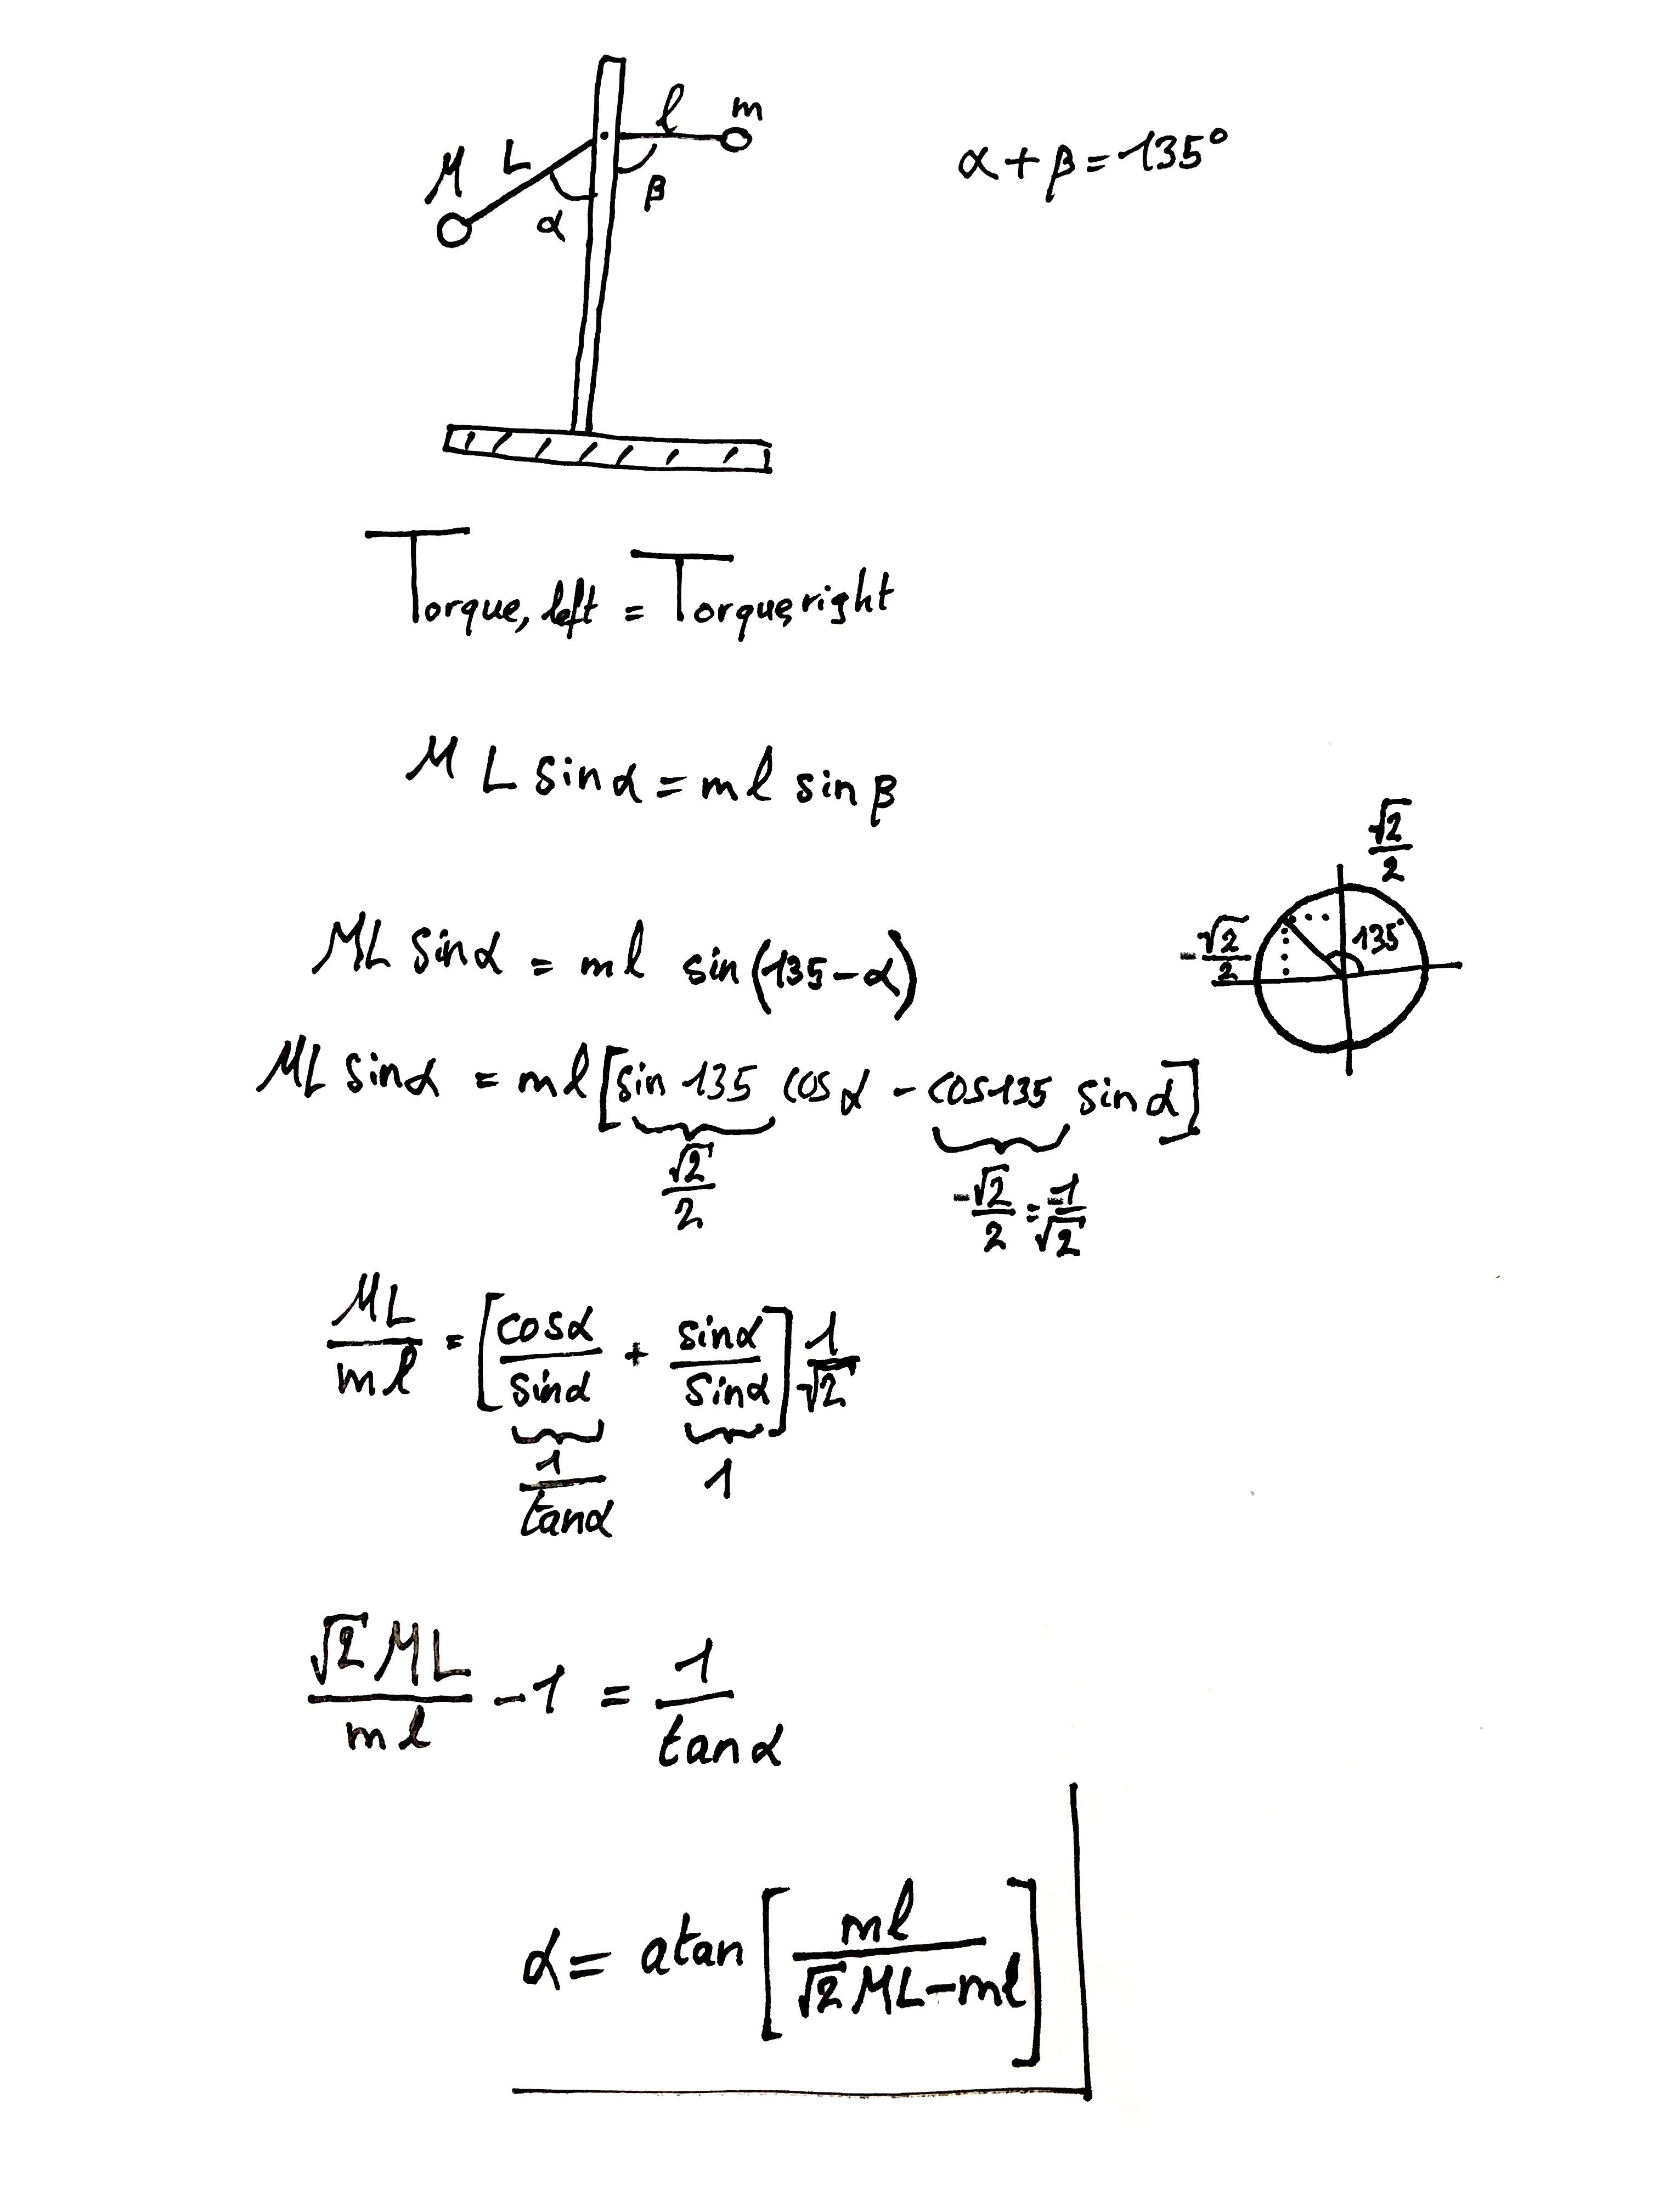 M L l m
α β
α + β = 135°
Torque, left = Torque, right
M L sin α = m l sin β
√2/2
-√2/2 135°
ML sin α = m l sin (135 - α)
ML sin α = m l [sin 135 cos α - cos 135 sin α]
√2/2 -√2/2 = -1/√2
ML/ml = [cos α/sin α + sin α/sin α] 1/√2
1/tan α 1
√2 ML/ml - 1 = 1/tan α
α = atan [ml/(√2 ML - ml)]